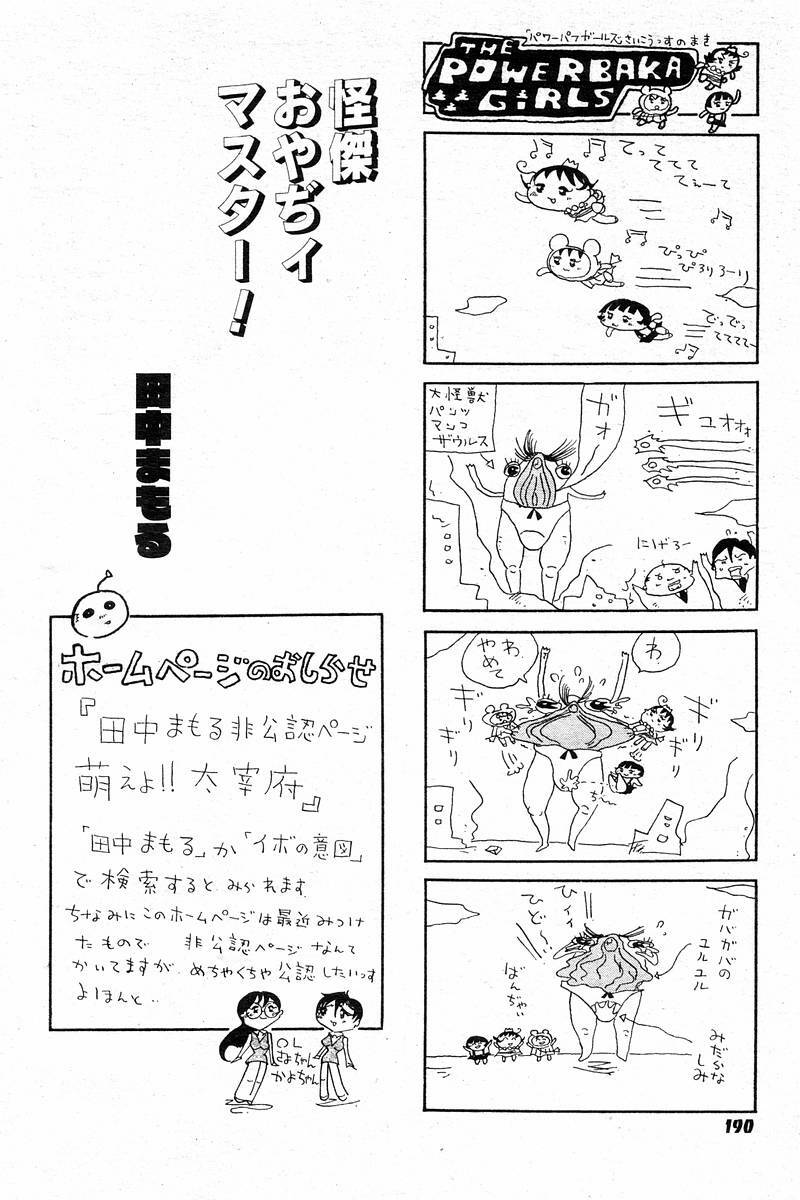 「パワーパフガールズ」さいこうっすのまき
THE
POWERBAKA
GIRLS
てって
てててて
てぇーて
ぴっぴ
ぴろりろーり
でっでっ
ててててー
ギュオォォ
ガォ
大怪獣
パンツ
マンコ
ザウルス
にげろー
わ
わ
やめて
ギリギリ
ギリギリ
ち〜
ガバガバの
ユルユル
ヒィィ
ひど〜!
ばんちゃい
みだらな
しみ
190
怪傑
おやぢィ
マスター!
田中まもる
ホームページのおしらせ
『田中まもる非公認ページ
萌えよ!!太宰府』
「田中まもる」か「イボの意図」
で検索するとみられます
ちなみにこのホームページは最近みつけ
たもので 非公認ページなんて
かいてますが、めちゃくちゃ公認したいっす
よほんと..
OL
さよちゃん
かよちゃん